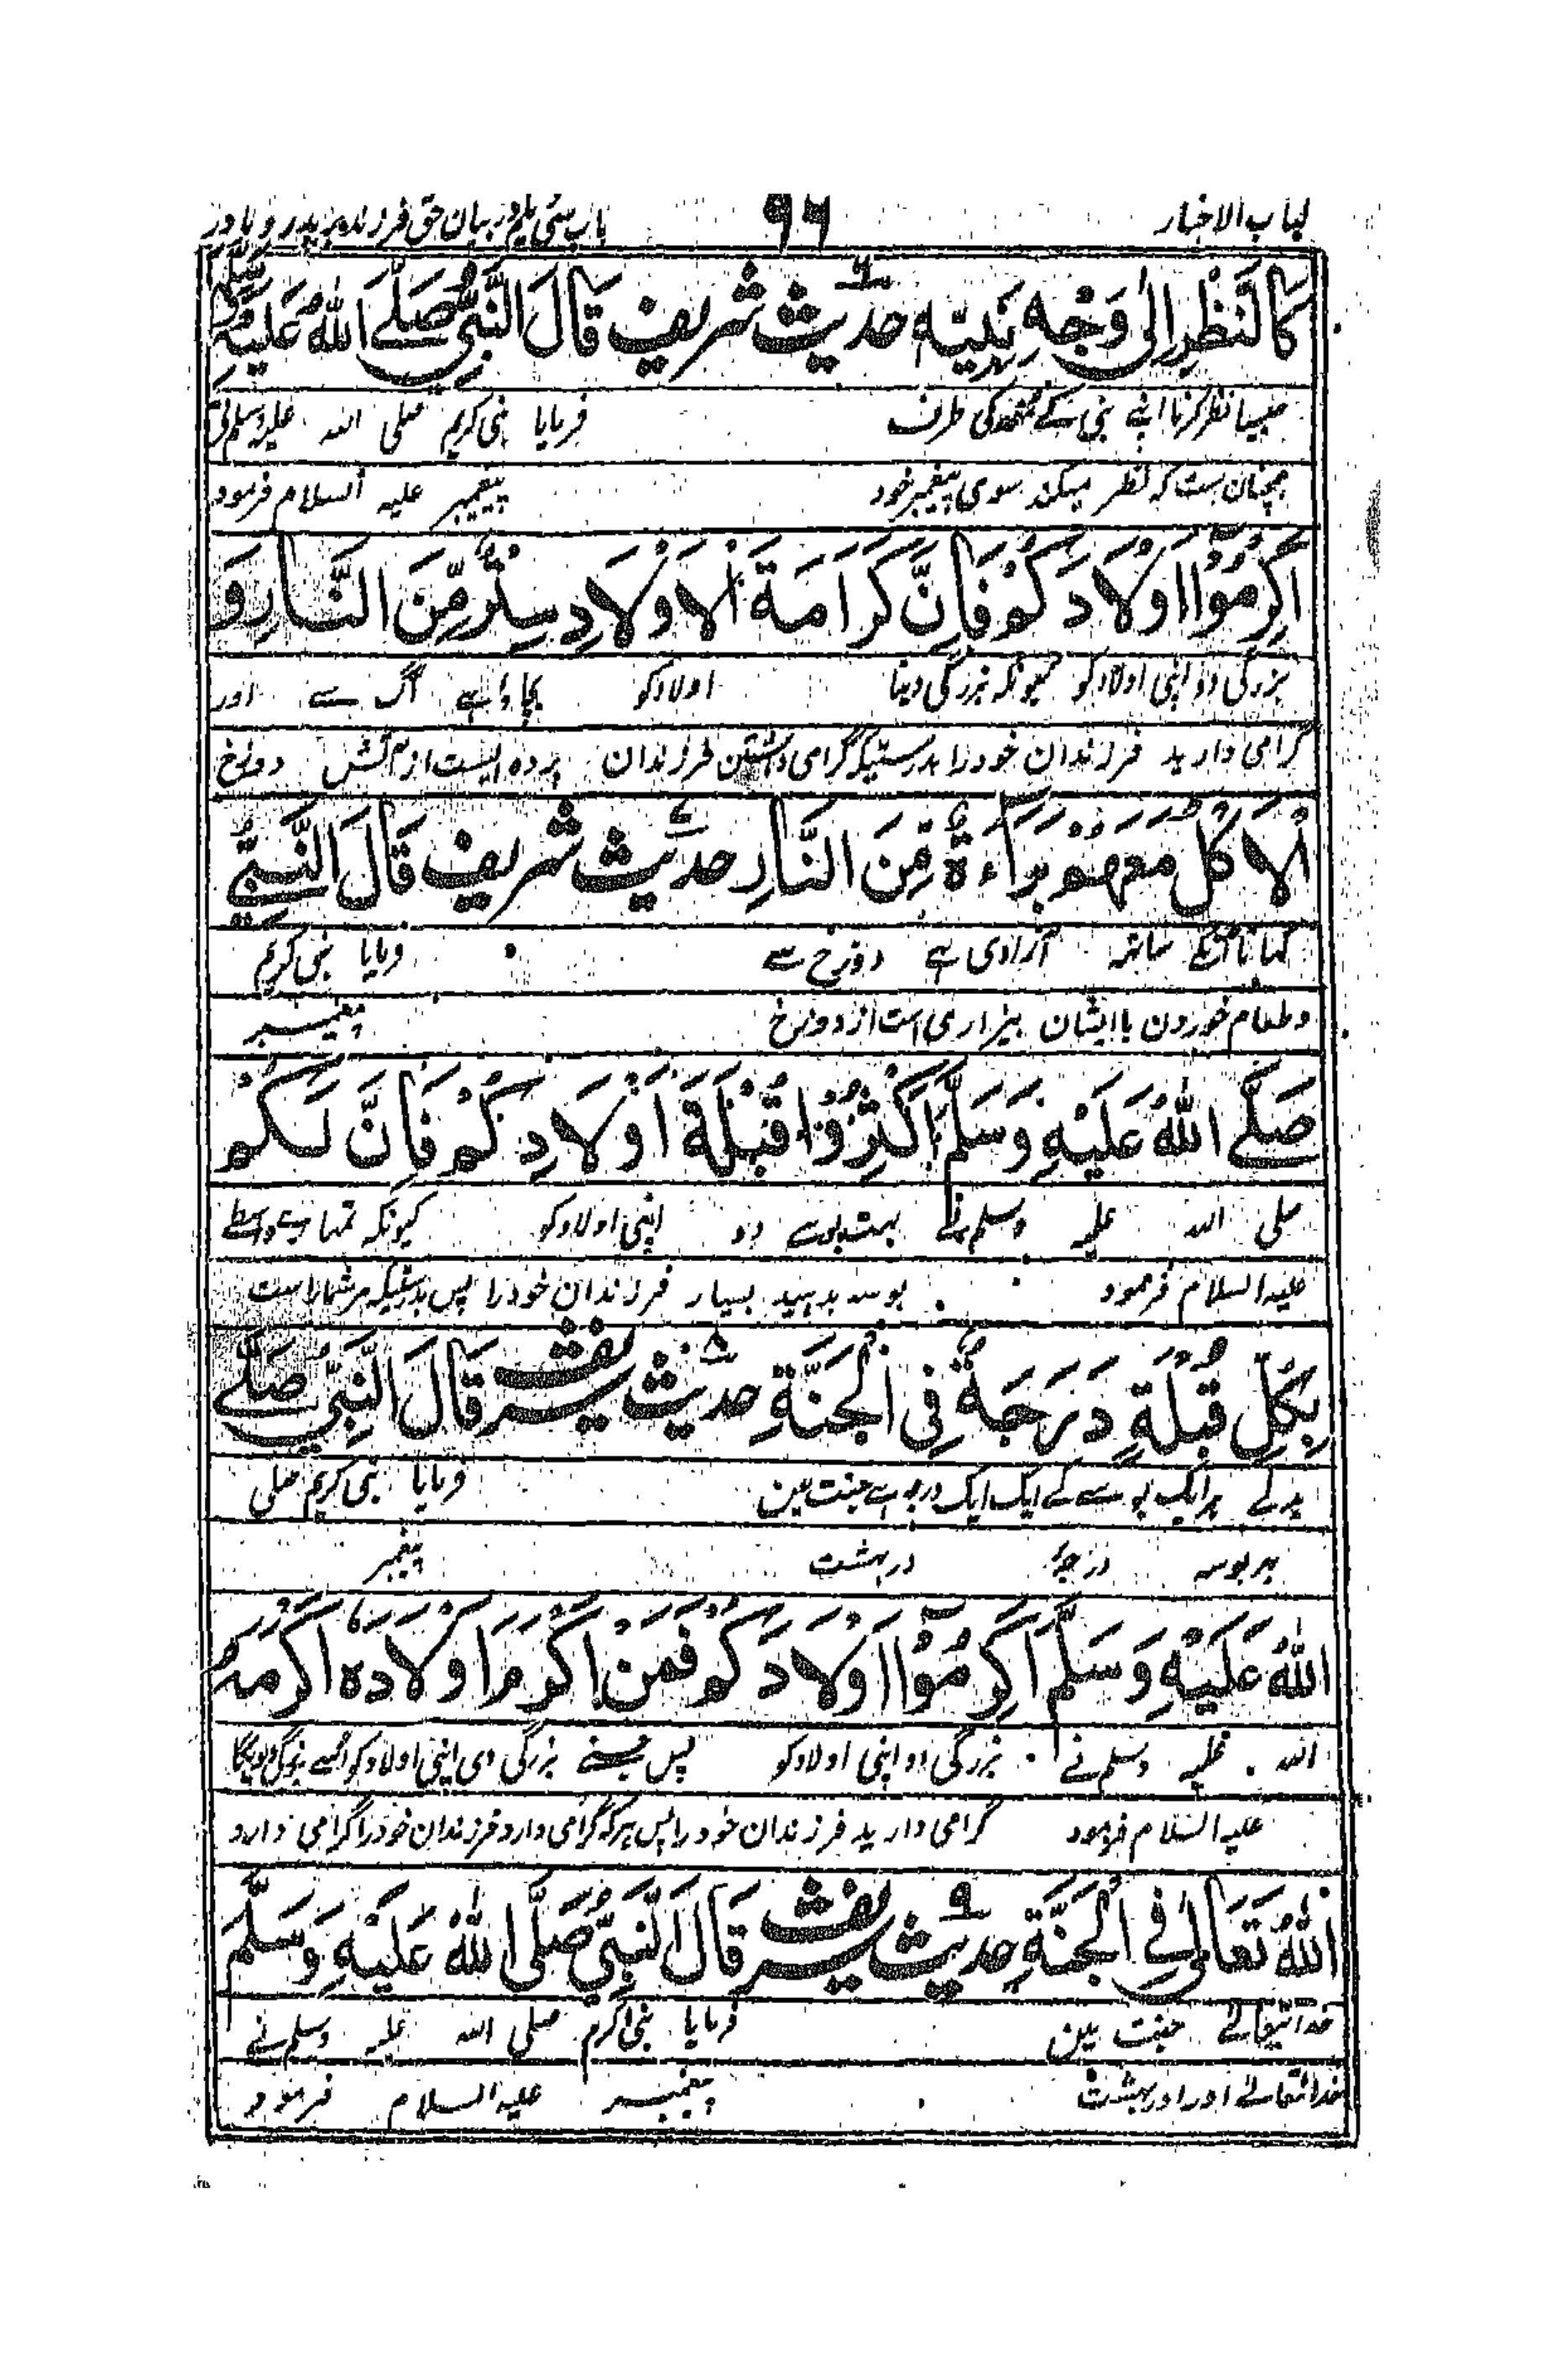 لباب الاخبار ۹۶ باب سی یکم در بیان حق فرزند بر پدر و مادر
كَالنَّظْرِ اِلٰی وَجْهِ نَبِيِّهٖ حدیث۶ شریف قَالَ النَّبِيُّ صَلَّے اللّٰهُ عَلَيْهِ وَسَلَّمَ
جیسا نظر کرنا اپنے نبی کے منھہ کی طرف فرمایا نبی کریم صلی اللہ علیہ وسلم نے
همچنان ست که نظر میکند سوی پیغمبر خود پیغمبر علیه السلام فرمود
اَكْرِمُوْٓا اَوْلَادَكُمْ فَاِنَّ كَرَامَةَ الْاَوْلَادِ سِتْرٌ مِّنَ النَّارِ وَ
بزرگی دو اپنی اولاد کو کیونکہ بزرگی دینا اولاد کو بچاؤ ہے آگ سے اور
گرامی دارید فرزندان خود را بدرستیکه گرامی داشتن فرزندان پرده ایست از آتش دوزخ
الْاَكْلُ مَعَهُمْ بَرَاءَةٌ مِّنَ النَّارِ حدیث۷ شریف قَالَ النَّبِيُّ
کھانا انکے ساتھہ آزادی ہے دوزخ سے فرمایا نبی کریم
و طعام خوردن با ایشان بیزاری است از دوزخ پیغمبر
صَلَّے اللّٰهُ عَلَيْهِ وَسَلَّمَ اَكْثِرُوْا قُبْلَةَ اَوْلَادِكُمْ فَاِنَّ لَكُمْ
صلی اللہ علیہ وسلم نے بہت بوسے دو اپنی اولاد کو کیونکہ تمہارے واسطے
علیه السلام فرمود بوسه بدهید بسیار فرزندان خود را پس بدرستیکه مر شما راست
بِكُلِّ قُبْلَةٍ دَرَجَةٌ فِی الْجَنَّةِ حدیث۸ شریف قَالَ النَّبِيُّ صَلَّے
بدلے ہر ایک بوسے کے ایک ایک درجہ ہے جنت مین فرمایا نبی کریم صلی
بهر بوسه درجۂ در بهشت پیغمبر
اللّٰهُ عَلَيْهِ وَسَلَّمَ اَكْرِمُوْٓا اَوْلَادَكُمْ فَمَنْ اَكْرَمَ اَوْلَادَهٗ اَكْرَمَهُ
اللہ علیہ وسلم نے بزرگی دو اپنی اولاد کو پس جسنے بزرگی دی اپنی اولاد کو اسے بزرگی دیویگا
علیه السلام فرمود گرامی دارید فرزندان خود را پس هر که گرامی دارد فرزندان خود را گرامی دارد
اللّٰهُ تَعَالٰی فِی الْجَنَّةِ حدیث۹ شریف قَالَ النَّبِيُّ صَلَّی اللّٰهُ عَلَيْهِ وَسَلَّمَ
خدا تعالے جنت مین فرمایا نبی اکرم صلی اللہ علیہ وسلم نے
خدا تعالے او را در بهشت پیغمبر علیه السلام فرمود